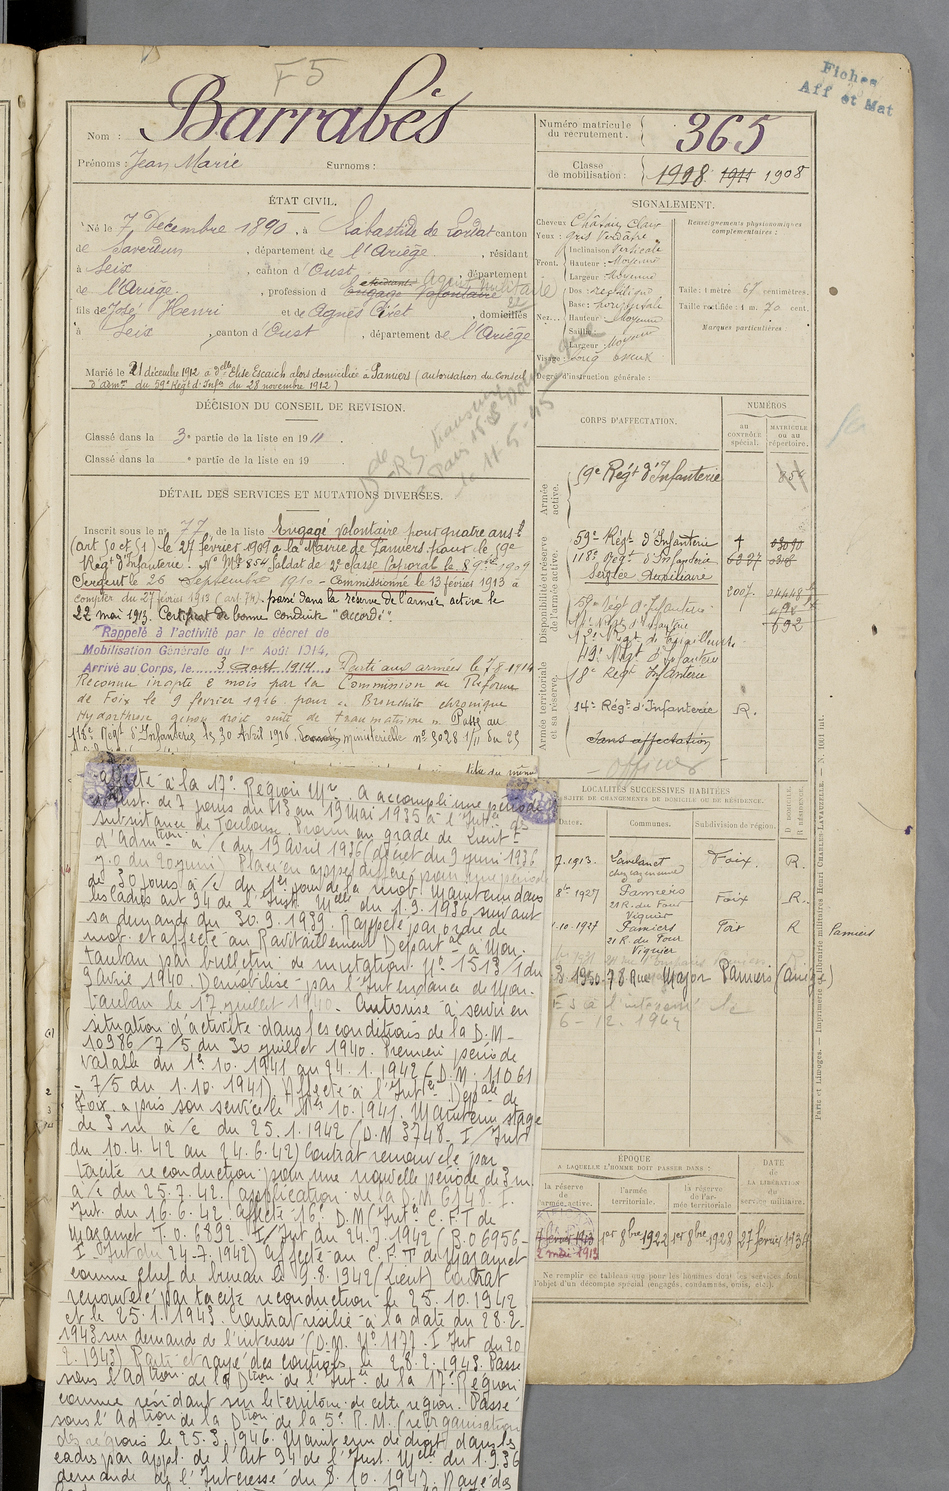 F5
Fiches
Aff et Mat
Nom : Barrabés
Prénoms : Jean Marie Surnoms :
Numéro matricule du recrutement. 365
Classe de mobilisation : 1928 1911 1908
ÉTAT CIVIL.
Né le 7 Décembre 1890, à Labastide de Lordat canton
de Saverdun, département de l'Ariège, résidant
à Seix, canton d'Oust, département
de l'Ariège, profession d'étudiant Engagé Volontaire Agent militaire
fils de José Henri et de Agnès Siret, domiciliés
à Seix, canton d'Oust, département de l'Ariège
Marié le 21 décembre 1912 à Delle Elise Escaich alors domiciliée à Pamiers (autorisation du Conseil
d'admon du 59e Régt d'Infie du 28 novembre 1912)
SIGNALEMENT.
Cheveux Châtain Clair
Yeux : gris verdâtre
Front. Inclinaison Verticale
Hauteur : Moyenne
Largeur Moyenne
Nez. Dos : rectiligne
Base : horizontale
Hauteur : Moyenne
Saillie
Largeur : Moyenne
Visage : long osseux
Renseignements physionomiques complémentaires :
Taille : 1 mètre 67 centimètres.
Taille rectifiée : 1 m. 70 cent.
Marques particulières :
Degré d'instruction générale :
DÉCISION DU CONSEIL DE REVISION.
Classé dans la 3e partie de la liste en 1911.
Classé dans la e partie de la liste en 19
DÉTAIL DES SERVICES ET MUTATIONS DIVERSES.
Inscrit sous le no 77 de la liste Engagé volontaire pour quatre ans
(art 50 et 51) le 27 février 1909 à la Mairie de Pamiers pour le 59e
Régt d'Infanterie. No Mle 854 Soldat de 2e classe Caporal le 8 9bre 1909
Sergent le 26 Septembre 1910 - Commissionné le 13 février 1913 à
compter du 27 février 1913 (art. 74). passé dans la réserve de l'armée active le
22 mai 1913. Certificat de bonne conduite "accordé".
Rappelé à l'activité par le décret de
Mobilisation Générale du 1er Août 1914,
Arrivé au Corps, le 3 Août 1914. Parti aux armées le 7-8-1914
Reconnu inapte 2 mois par la Commission de Réforme
de Foix le 9 février 1916 pour « Bronchite chronique
Hydarthrose genou droit suite de traumatisme » Passé au
118e Régt d'Infanterie le 30 Avril 1916. ministérielle no 5028 1/11 du 25
CORPS D'AFFECTATION.
NUMÉROS
au CONTRÔLE spécial.
MATRICULE ou au répertoire.
Armée active.
59e Régt d'Infanterie 854
Disponibilité et réserve de l'armée active.
59e Régt d'Infanterie
118e Régt d'Infanterie
Service Auxiliaire
59e Régt d'Infanterie
Régt de Tirailleurs
Armée territoriale et sa réserve.
49e Régt d'Infanterie
18e Régt Infanterie
14e Régt d'Infanterie R.
Sans affectation
officier
LOCALITÉS SUCCESSIVES HABITÉES
PAR SUITE DE CHANGEMENTS DE DOMICILE OU DE RÉSIDENCE.
Dates. Communes. Subdivision de région. D. DOMICILE. R. RÉSIDENCE.
7.1913. Lavelanet Foix. R.
8bre 1927 Pamiers 21 R. du Four Viguier Foix R.
1.10.1927 Pamiers 21 R. du Four Viguier Foix R Pamiers
3. 1950. 78 Rue Major Pamiers (Ariège)
FS à l'intéressé le
6-12.1944
ÉPOQUE
A LAQUELLE L'HOMME DOIT PASSER DANS :
la réserve de l'armée active.
l'armée territoriale.
la réserve de l'armée territoriale
DATE de LA LIBÉRATION du service militaire.
2 mai 1913
1er 8bre 1922 1er 8bre 1928 27 février 1934
Ne remplir ce tableau que pour les hommes dont les services font
l'objet d'un décompte spécial (engagés, condamnés, omis, etc.).
Paris et Limoges. — Imprimerie et librairie militaires Henri CHARLES-LAVAUZELLE.
affecté à la 17e Région Mre. A accompli une période
d'Inst. de 7 jours du 13 au 19 Mai 1935 à l'Intce des
subsistances de Toulouse. Promu au grade de Lieutt
d'Admtion à/c du 19 Avril 1936 (décret du 9 juin 1936
J.O du 20 juin) Placé en appel différé pour une période
de 30 jours à/c du 1er jour de la mob. Maintenu dans
les cadres art 94 de l'Inst. Mlle du 1.9.1936 suivant
sa demande du 30.9.1939. Rappelé par ordre de
mob. et affecté au Ravitaillement Départal à Mon-
tauban par bulletin de mutation No 1513/1 du
9 Avril 1940. Démobilisé par l'Intendance de Mon-
tauban le 17 juillet 1940. Autorisé à servir en
situation d'activité dans les conditions de la D.M-
10986/7/5 du 30 juillet 1940. Première période
valable du 1er 10.1941 au 24.1.1942 (D.M. 11061
- 7/5 du 1.10.1941) Affecté à l'Intce Départale de
Foix. a pris son service le 1er 10.1941. Maintenu stage
de 3 m à/c du 25.1.1942 (D.M 3748. I/Int
du 10.4.42 au 24.6.42) Contrat renouvelé par
tacite reconduction pour une nouvelle période de 3 m.
à/c du 25.7.42. (application de la D.M 6148. I.
Int. du 16.6.42. affecté 16e D.M (Intce C.F.T de
Mazamet T.O. 6892. I/Int du 24.7.1942 (B.O 6956-
I Int du 24.7.1942) affecté au C.F.T de Mazamet
comme chef de bureau le 19.8.1942 (lieut) Contrat
renouvelé par tacite reconduction le 25.10.1942
et le 25.1.1943. Contrat résilié à la date du 28.2-
1943 sur demande de l'intéressé (D.M. No 1177. I Int du 20
2.1943) Radié et rayé des contrôles le 28.2.1943. Passe
sous l'Adtion de la Dtion de l'Intce de la 17e Région
comme résidant sur le territoire de cette région. Passe
sous l'Adtion de la Dtion de la 5e R.M. (réorganisation
des régions le 25.3.1946. Maintenu de droit dans les
cadres par appl. de l'Art 94 de l'Inst. Mlle du 1.9.36
demande de l'Intéressé du 8.10.1947. Rayé des